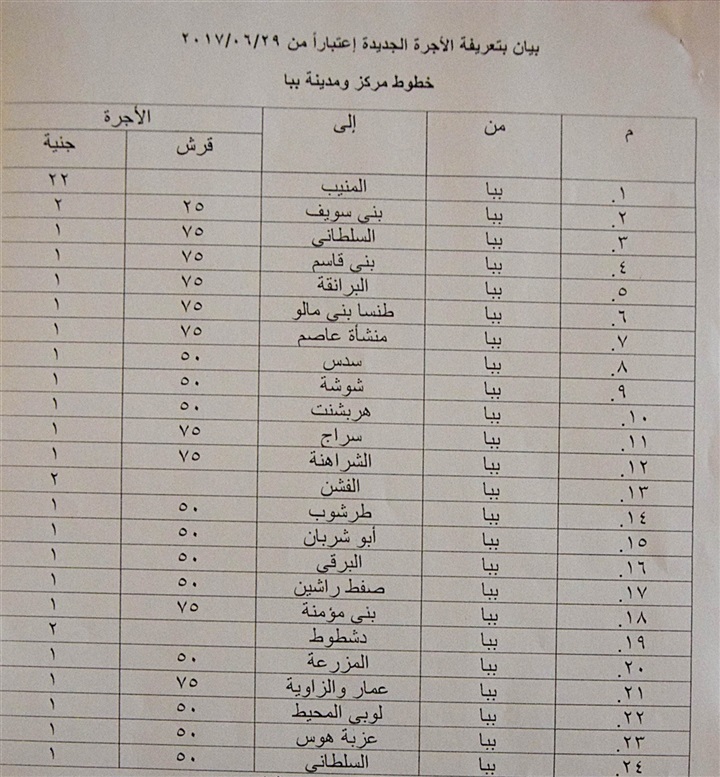 بيان بتعريفة الأجرة الجديدة إعتباراً من ٢٠١٧/٠٦/٢٩
خطوط مركز ومدينة ببا
م من إلى الأجرة
قرش جنية
١. ببا المنيب ٢٢
٢. ببا بني سويف ٢٥ ٢
٣. ببا السلطاني ٧٥ ١
٤. ببا بني قاسم ٧٥ ١
٥. ببا البرانقة ٧٥ ١
٦. ببا طنسا بني مالو ٧٥ ١
٧. ببا منشأة عاصم ٧٥ ١
٨. ببا سدس ٥٠ ١
٩. ببا شوشة ٥٠ ١
١٠. ببا هربشنت ٥٠ ١
١١. ببا سراج ٧٥ ١
١٢. ببا الشراهنة ٧٥ ١
١٣. ببا الفشن ٢
١٤. ببا طرشوب ٥٠ ١
١٥. ببا أبو شربان ٥٠ ١
١٦. ببا البرقي ٥٠ ١
١٧. ببا صفط راشين ٥٠ ١
١٨. ببا بني مؤمنة ٧٥ ١
١٩. ببا دشطوط ٢
٢٠. ببا المزرعة ٥٠ ١
٢١. ببا عمار والزاوية ٧٥ ١
٢٢. ببا لوبي المحيط ٥٠ ١
٢٣. ببا عزبة هوس ٥٠ ١
٢٤. ببا السلطاني ٥٠ ١